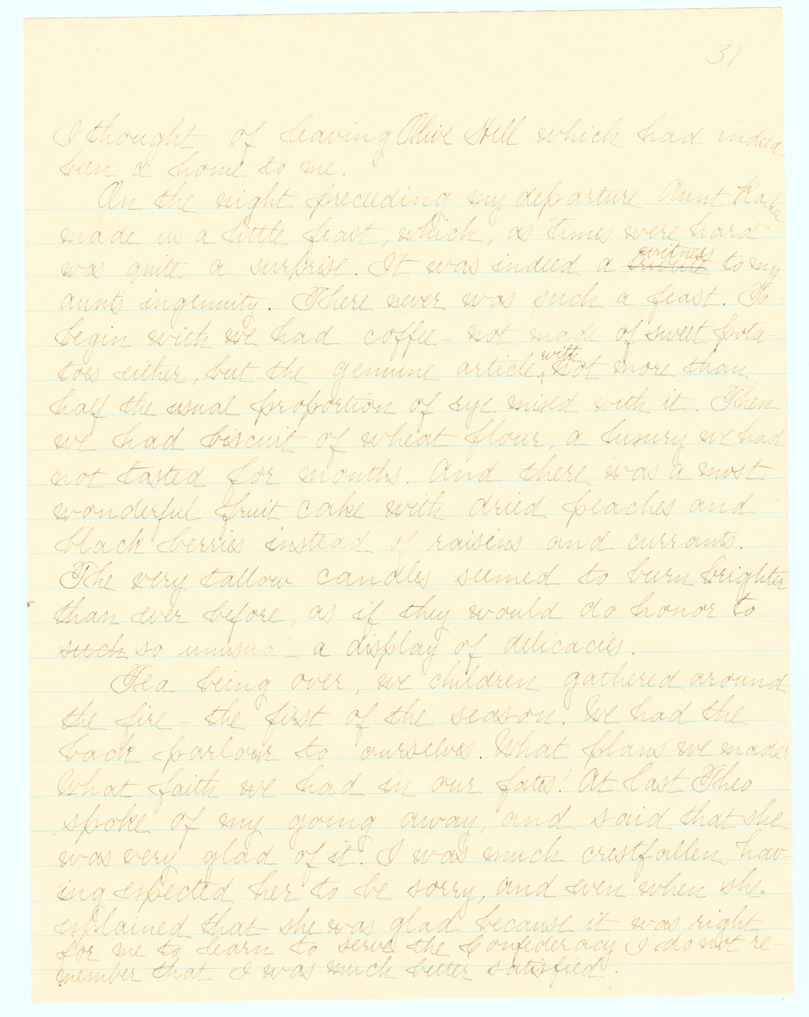 31
I thought of leaving Olive Hill which had indeed
been a home to me.
On the night preceeding my departure Aunt
made us a little feast, which, as "times were hard"
was quite a surprise. It was indeed a witness to my
aunts ingenuity. There never was such a feast. To
begin with we had coffee - not made of sweet pota-
toes either, but the genuine article, with not more than
half the usual proportion of rye mixed with it. Then
we had biscuit of wheat flour, a luxury we had
not tasted for months. And there was a most
wonderful fruit cake with dried peaches and
black berries instead of raisens and currants.
The very tallow candles seemed to burn brighter
than ever before, as if they would do honor to
such so unusual a display of delicacies.
Tea being over, we children gathered around
the fire - the first of the season. We had the
back parlour to ourselves. What plans we made!
What faith we had in our fates! At last Theo
spoke of my going away, and said that she
was very glad of it. I was much crestfallen, hav-
ing expected her to be sorry, and even when she
explained that she was glad because it was right
for me to learn to serve the Confederacy I do not re-
member that I was much better satisfied.